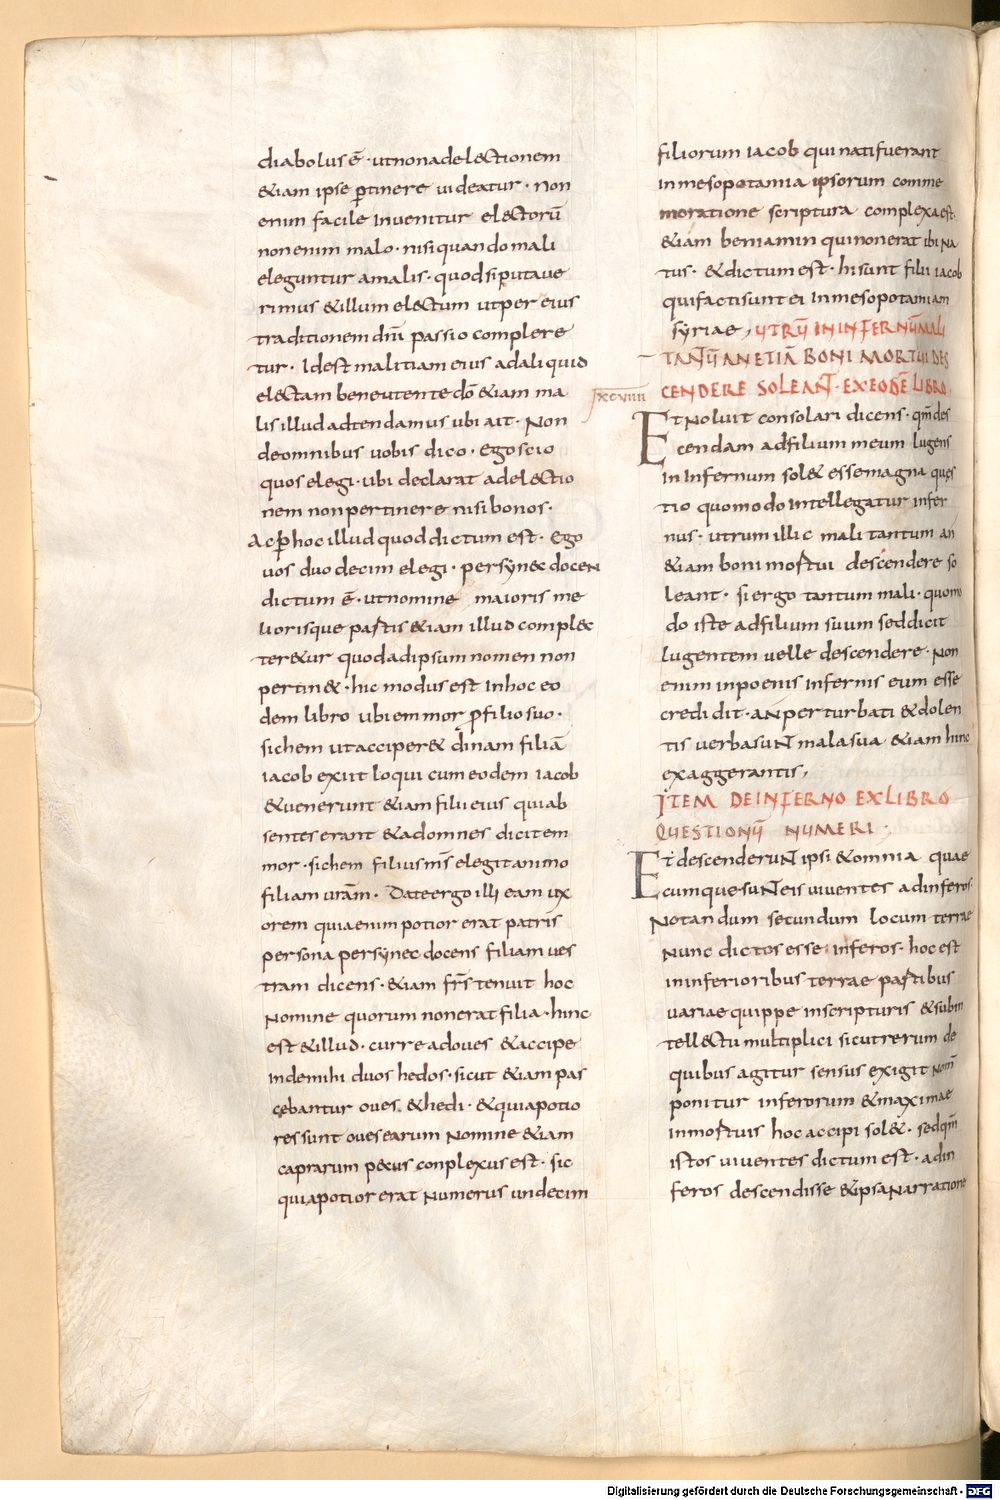 diabolus ē · ut non ad electionem
&iam ipse ꝑtinere uideatur · Non
enim facile Inuenitur electorū
non enim malo · nisi quando mali
eleguntur a malis · quod si putaue
rimus & illum electum ut per eius
traditionem dn̄i passio complere
tur · Id est malitiam eius ad aliquid
electam bene utente dō &iam ma
lis illud adtendamus ubi ait · Non
de omnibus uobis dico · Ego scio
quos elegi · ubi declarat ad electio
nem non pertinere nisi bonos ·
Ac ꝑ hoc illud quod dictum est · Ego
uos duodecim elegi · per synecdocen
dictum ē · ut nomine maioris me
liorisque partis &iam illud complec
ter&ur quod ad ipsum nomen non
pertin& · hic modus est In hoc eo
dem libro ubi emmor ꝓ filio suo ·
sichem ut acciper& dinam filiā
iacob exiit loqui cum eodem iacob
& uenerunt &iam filii eius qui ab
sentes erant & ad omnes dicit em
mor · sichem filius ms̄ elegit animo
filiam urām · Date ergo illi eam ux
orem quia enim potior erat patris
persona per synecdocens filiam ues
tram dicens · &iam frs̄ tenuit hoc
Nomine quorum non erat filia · hinc
est & illud · curre ad oues & accipe
Inde mihi duos hedos · sicut &iam pas
cebantur oues & hedi · & quia potio
res sunt oues earum Nomine &iam
caprarum pecus conplexus est · sic
quia potior erat Numerus undecim
filiorum iacob qui nati fuerant
In mesopotamia ipsorum comme
moratione scriptura complexa est ·
&iam beniamin qui non erat ibi Na
tus · & dictum est · hi sunt filii iacob
qui facti sunt ei In mesopotamiam
syriae, UTRŪ IN INFERNŪ MALI
TANTŪ AN ETIĀ BONI MORTUI DES
CENDERE SOLEANT · EX EODĒ LIBRO
xcviiii
Et Noluit consolari dicens · qm̄ des
cendam ad filium meum lugens
In Infernum sol& esse magna ques
tio quomodo Intellegatur infer
nus · utrum illic mali tantum an
&iam boni mortui descendere so
leant · si ergo tantum mali · quomo
do iste ad filium suum sed dicit
lugentem uelle descendere · Non
enim in poenis infernis eum esse
credidit · an perturbati & dolen
tis uerba sunt mala sua &iam hinc
exaggerantis,
ITEM DE INFERNO EX LIBRO
QUESTIONŪ NUMERI ·
Et descenderunt ipsi & omnia quae
cumque sunt eis uiuentes ad inferos ·
Notandum secundum locum terrae
Nunc dictos esse inferos · hoc est
in inferioribus terrae partibus
uariae quippe in scripturis & sub in
tellectu multiplici sicut rerum de
quibus agitur sensus exigit Nom̄
ponitur inferorum & maximae
in mortuis hoc accipi sol& · sed qm̄
istos uiuentes dictum est · ad in
feros descendisse & ipsa Narratione
Digitalisierung gefördert durch die Deutsche Forschungsgemeinschaft · DFG